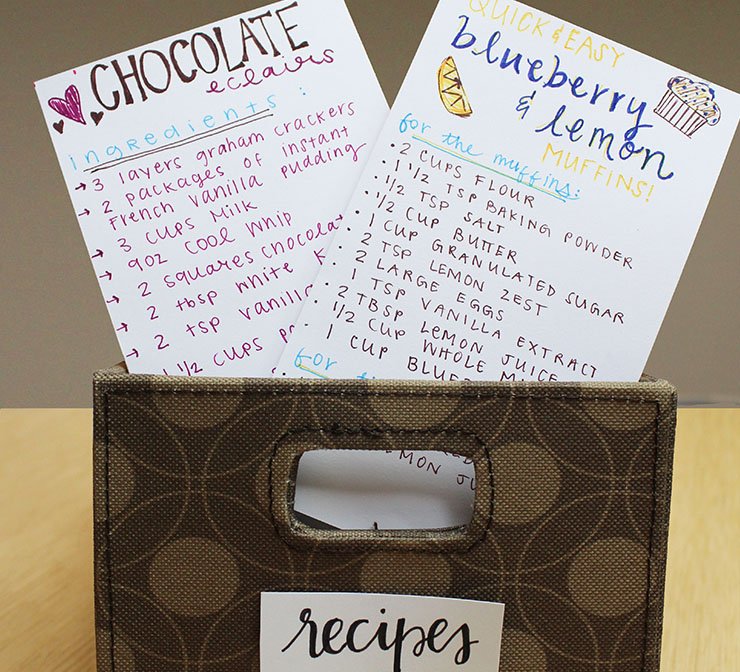 CHOCOLATE
eclairs
ingredients:
→ 3 layers graham crackers
→ 2 packages of instant
French vanilla pudding
→ 3 cups milk
→ 9oz cool whip
→ 2 squares
→ 2 tbsp white
→ 2 tsp
→ 1 1/2 cups
QUICK & EASY
blueberry
& lemon
MUFFINS!
for the muffins:
• 2 CUPS FLOUR
• 1 1/2 TSP BAKING POWDER
• 1/2 TSP SALT
• 1/2 CUP BUTTER
• 1 CUP GRANULATED SUGAR
• 2 TSP LEMON ZEST
• 2 LARGE EGGS
• 1 TSP VANILLA EXTRACT
• 2 TBSP LEMON JUICE
• 1/2 CUP WHOLE
• 1 CUP
for
recipes